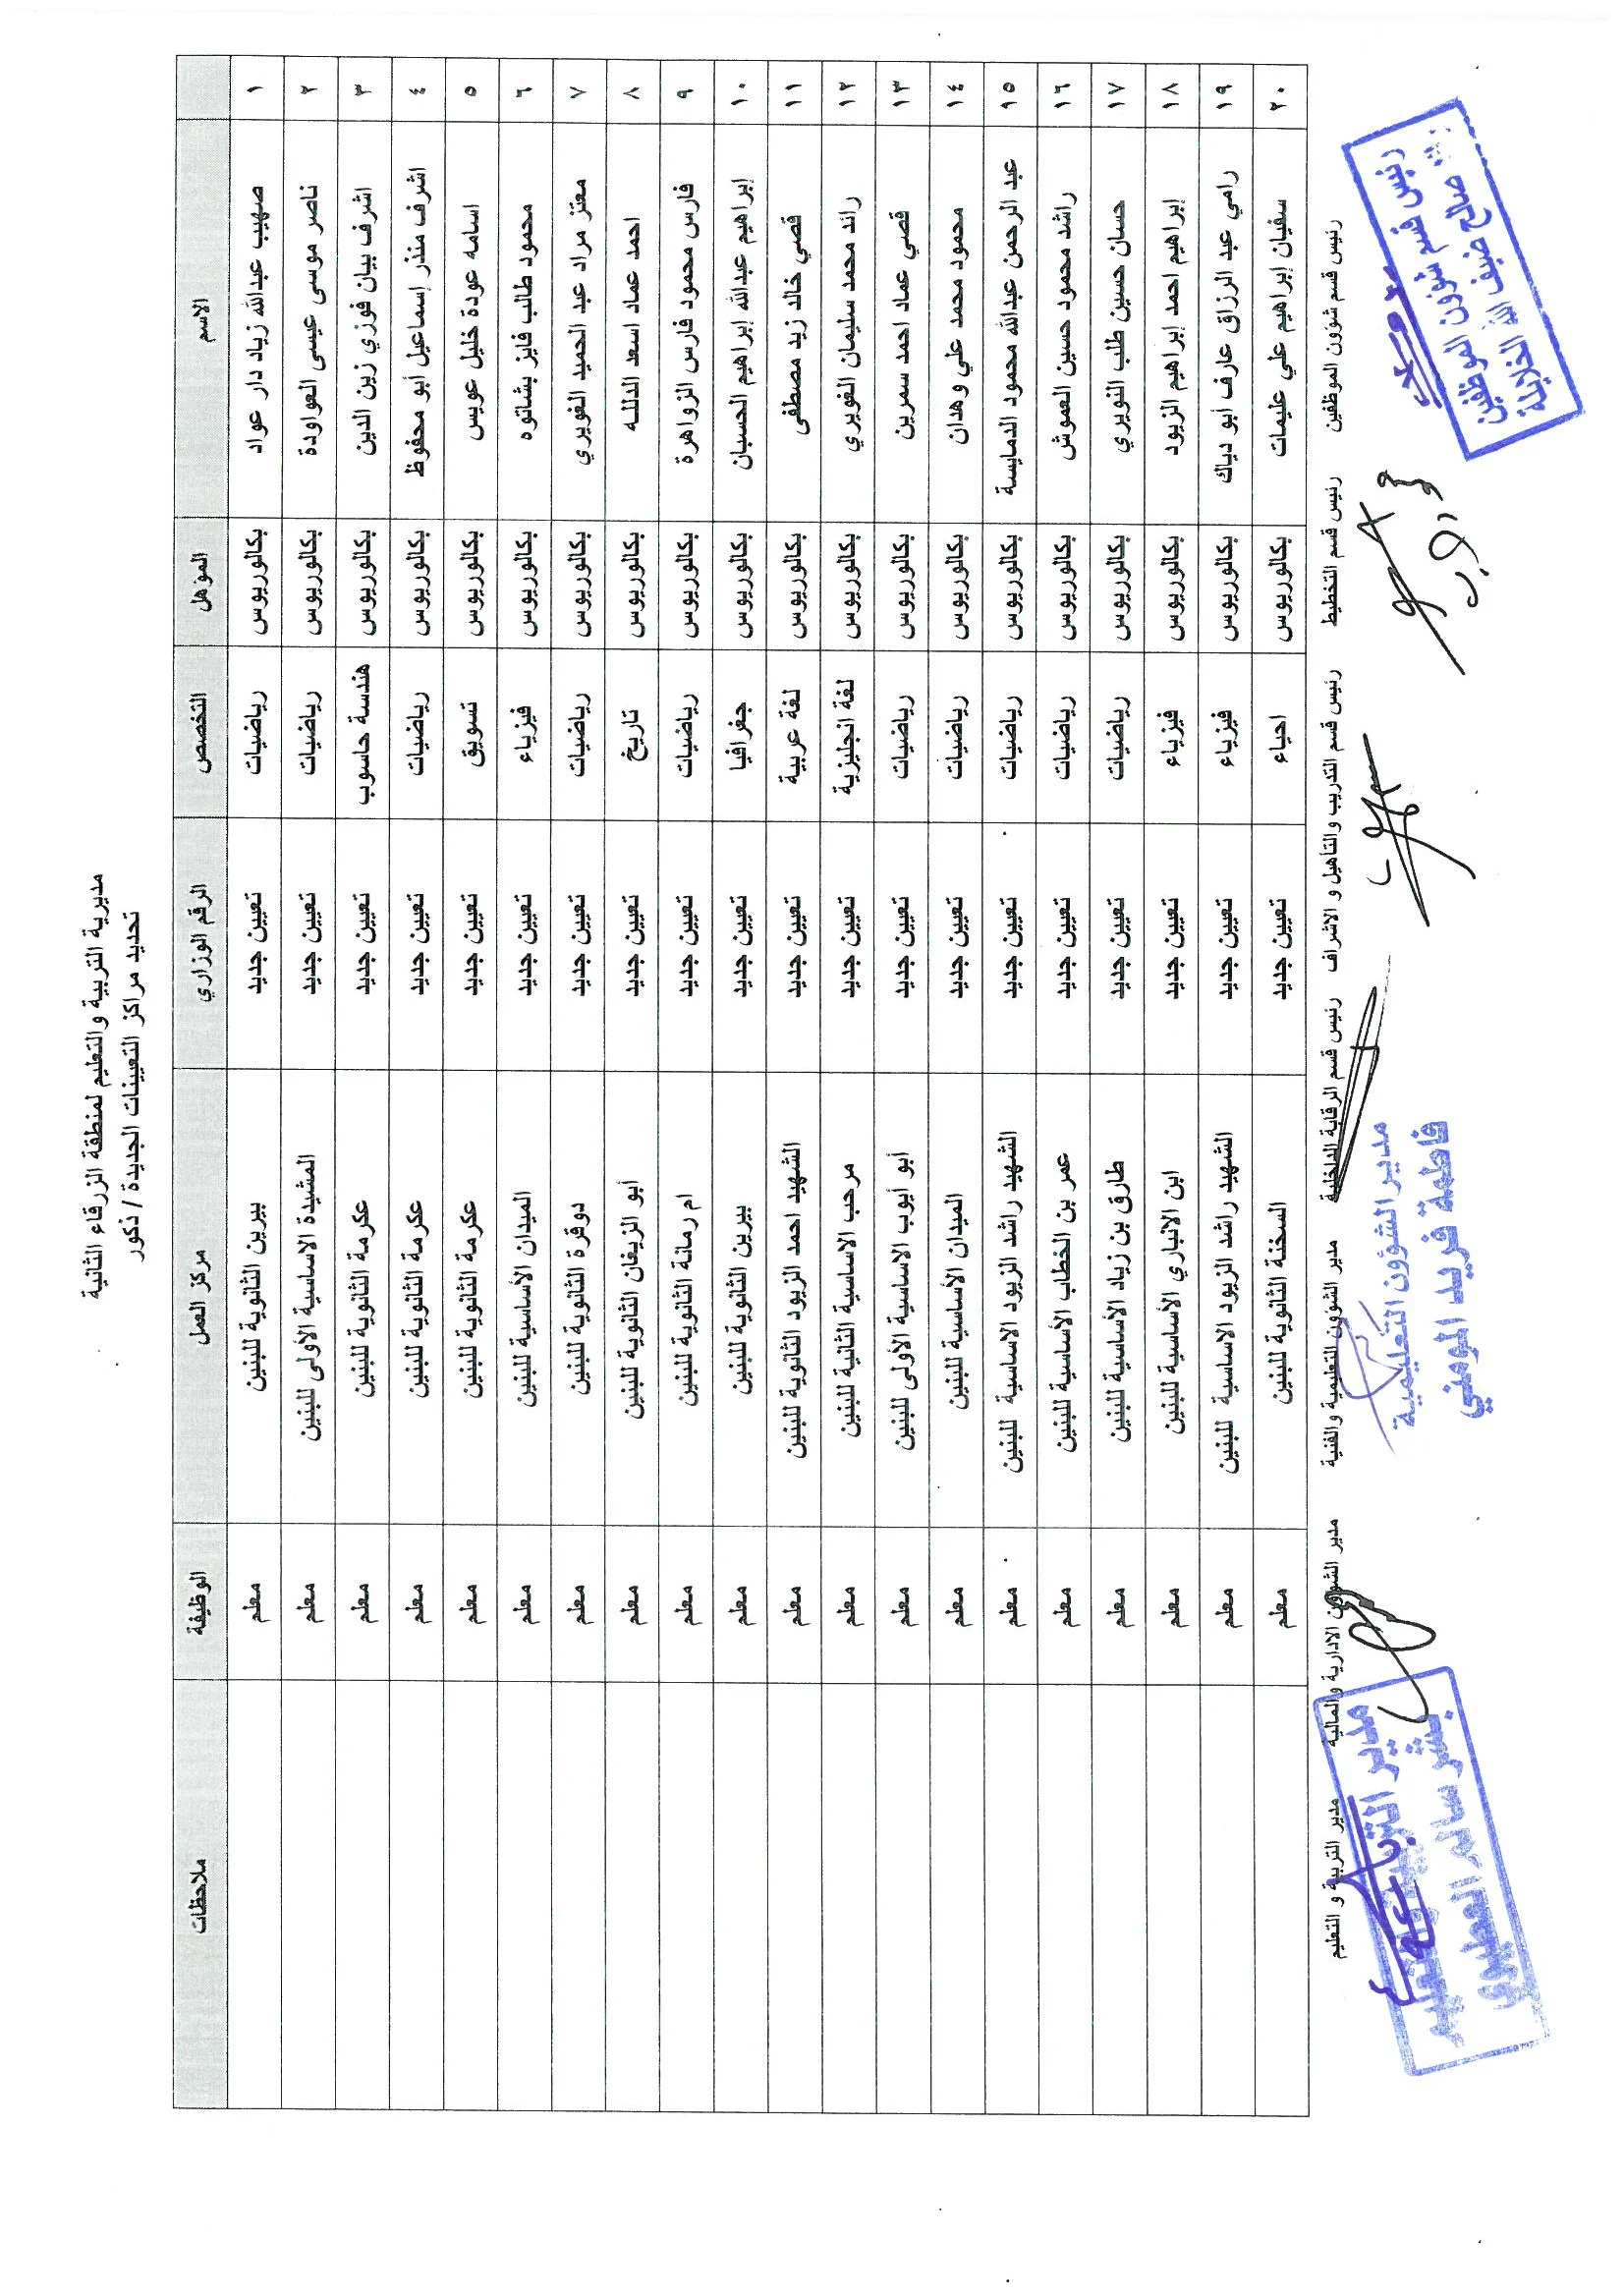 مديرية التربية والتعليم لمنطقة الزرقاء الثانية
تحديد مراكز التعيينات الجديدة / ذكور
الاسم المؤهل التخصص الرقم الوزاري مركز العمل الوظيفة ملاحظات
١ صهيب عبدالله زياد دار عواد بكالوريوس رياضيات تعيين جديد بيرين الثانوية للبنين معلم
٢ ناصر موسى عيسى العواودة بكالوريوس رياضيات تعيين جديد المشيدة الاساسية الأولى للبنين معلم
٣ اشرف بيان فوزي زين الدين بكالوريوس هندسة حاسوب تعيين جديد عكرمة الثانوية للبنين معلم
٤ اشرف منذر إسماعيل أبو محفوظ بكالوريوس رياضيات تعيين جديد عكرمة الثانوية للبنين معلم
٥ اسامه عودة خليل عويس بكالوريوس تسويق تعيين جديد عكرمة الثانوية للبنين معلم
٦ محمود طالب فايز بشاتوه بكالوريوس فيزياء تعيين جديد الميدان الأساسية للبنين معلم
٧ معتز مراد عبد الحميد الغويري بكالوريوس رياضيات تعيين جديد دوقرة الثانوية للبنين معلم
٨ احمد عماد اسعد الدلله بكالوريوس تاريخ تعيين جديد أبو الزيغان الثانوية للبنين معلم
٩ فارس محمود فارس الزواهرة بكالوريوس رياضيات تعيين جديد ام رمانة الثانوية للبنين معلم
١٠ إبراهيم عبدالله إبراهيم الحسبان بكالوريوس جغرافيا تعيين جديد بيرين الثانوية للبنين معلم
١١ قصي خالد زيد مصطفى بكالوريوس لغة عربية تعيين جديد الشهيد احمد الزيود الثانوية للبنين معلم
١٢ رائد محمد سليمان الغويري بكالوريوس لغة انجليزية تعيين جديد مرحب الاساسية الثانية للبنين معلم
١٣ قصي عماد احمد سمرين بكالوريوس رياضيات تعيين جديد أبو أيوب الاساسية الأولى للبنين معلم
١٤ محمود محمد علي وهدان بكالوريوس رياضيات تعيين جديد الميدان الأساسية للبنين معلم
١٥ عبد الرحمن عبدالله محمود الدمايسة بكالوريوس رياضيات تعيين جديد الشهيد راشد الزيود الاساسية للبنين معلم
١٦ راشد محمود حسين العموش بكالوريوس رياضيات تعيين جديد عمر بن الخطاب الأساسية للبنين معلم
١٧ حسان حسين طلب النويري بكالوريوس رياضيات تعيين جديد طارق بن زياد الأساسية للبنين معلم
١٨ إبراهيم احمد إبراهيم الزيود بكالوريوس فيزياء تعيين جديد ابن الانباري الأساسية للبنين معلم
١٩ رامي عبد الرزاق عارف أبو دياك بكالوريوس فيزياء تعيين جديد الشهيد راشد الزيود الاساسية للبنين معلم
٢٠ سفيان إبراهيم علي عليمات بكالوريوس احياء تعيين جديد السخنة الثانوية للبنين معلم
رئيس قسم شؤون الموظفين رئيس قسم التخطيط رئيس قسم التدريب والتأهيل و الاشراف رئيس قسم الرقابة الداخلية مدير الشؤون التعليمية والفنية مدير الشؤون الادارية والمالية مدير التربية و التعليم
رئيس قسم شؤون الموظفين
صالح ضيف الله الخلايلة
مدير الشؤون التعليمية
فاطمة فريد المومني
مدير التربية والتعليم